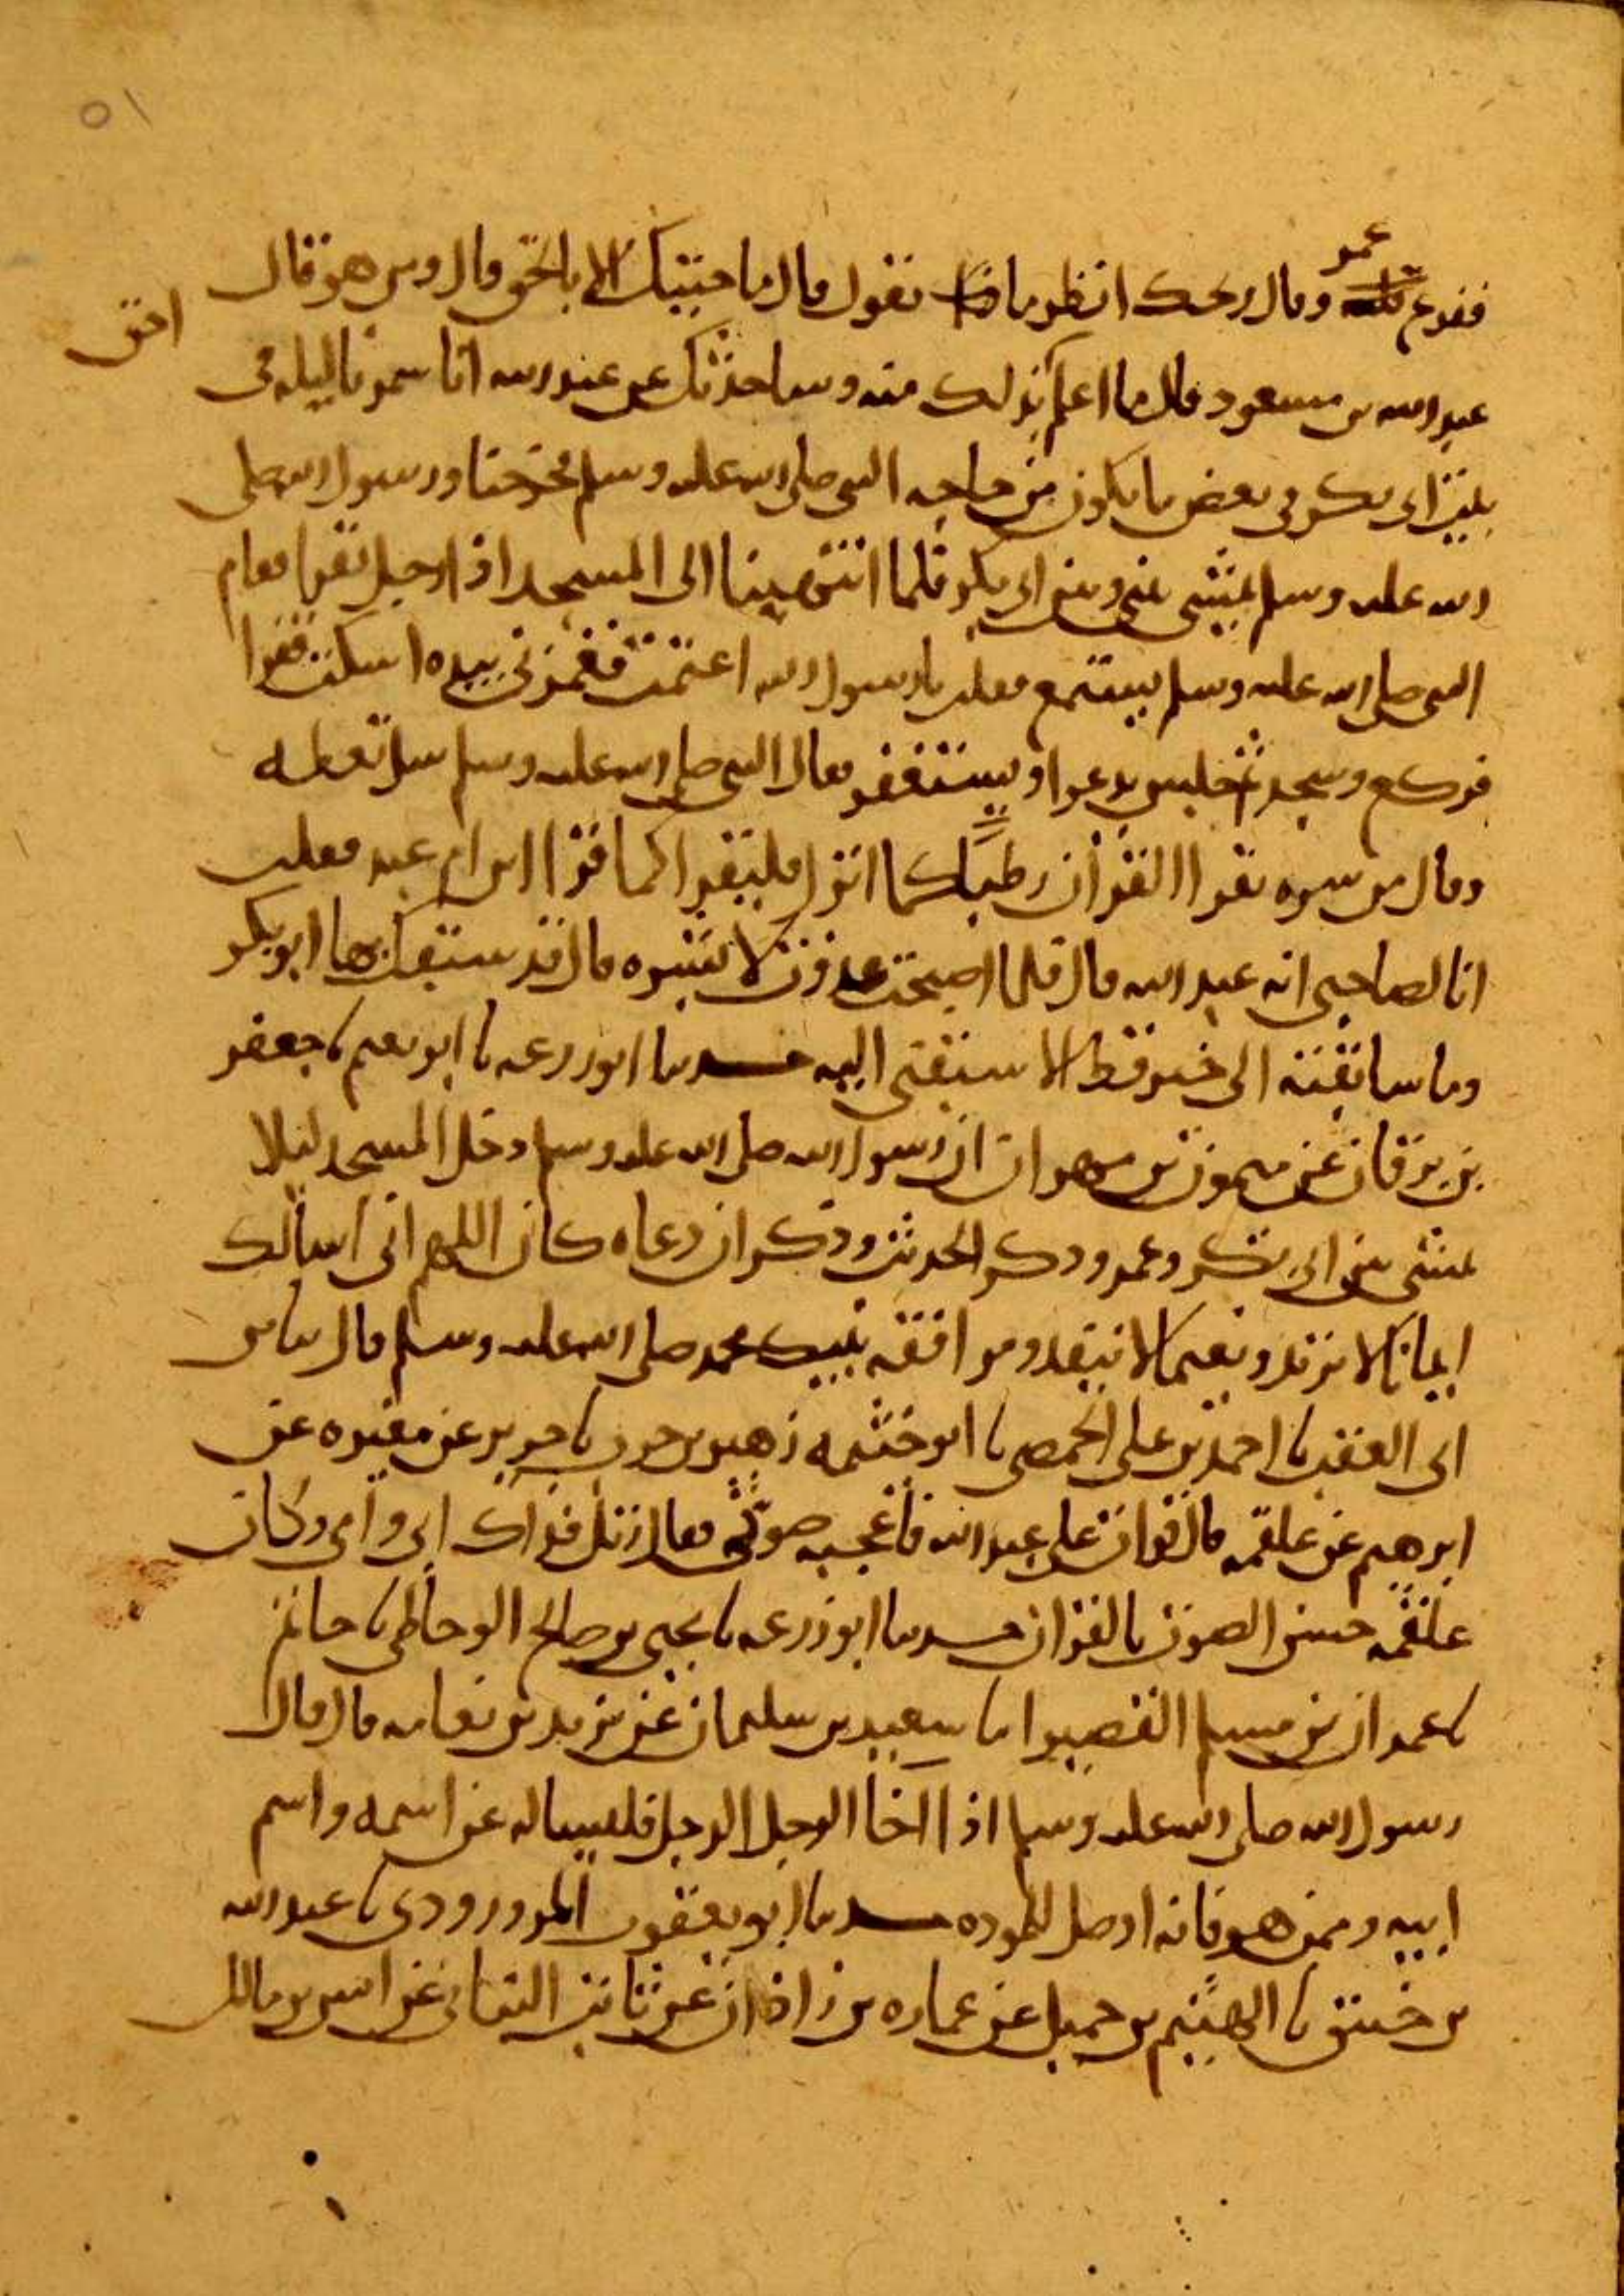 ٥١
عمر
ففزع وقال ويحك انظر ماذا تقول قال ما جيتك الا بالحق قال ومن هو قال
احق
عبد الله بن مسعود قال ما اعلم بذلك منه وساحدثك عن عبد الله انا سمرنا ليله في
بيت ابي بكر في بعض ما يكون من حاجه النبي صلى الله عليه وسلم فخرجنا ورسول الله صلى
الله عليه وسلم يمشي بيني وبين ابي بكر فلما انتهينا الى المسجد اذا رجل يقرا فقام
النبي صلى الله عليه وسلم يستمع فقلت يا رسول الله اعتمت فغمزني بيده اسكت فقرا
فركع وسجد ثم جلس يدعوا ويستغفر فقال النبي صلى الله عليه وسلم سل تعطه
وقال من سره يقرا القرآن رطبا كما انزل فليقرا كما قرا ابن ام عبد فعلمت
انا لصاحبي انه عبد الله قال فلما اصبحت غدوت لابشره قال قد سبقك بها ابو بكر
وما سابقته الى خير قط الا سبقني اليه حدثنا ابو زرعه نا ابو نعيم نا جعفر
بن برقان عن ميمون بن مهران ان رسول الله صلى الله عليه وسلم دخل المسجد ليلا
يمشي بين ابي بكر وعمر وذكر الحديث وذكر ان دعاه كان اللهم اني اسالك
ايمانا لا يرتد ونعيما لا ينفد ومرافقه نبيك محمد صلى الله عليه وسلم قال نا بن
ابي العقب نا احمد بن علي الحمصي نا ابو خثيمه زهير بن حرب نا جرير عن مغيره عن
ابرهيم عن علقمه قال قرات على عبد الله فاعجبه صوتي فقال رتل فداك ابي وامي وكان
علقمه حسن الصوت بالقران حدثنا ابو زرعه نا يحيى بن صالح الوحاظي نا حاتم
نا عمران بن مسلم القصير انا سعيد بن سليمان عن يزيد بن نعامه قال قال
رسول الله صلى الله عليه وسلم اذا اخا الرجل الرجل فليساله عن اسمه واسم
ابيه وممن هو فانه اوصل للموده حدثنا ابو يعقوب المروروذي نا عبد الله
بن خبيق نا الهيثم بن جميل عن عماره بن زاذان عن ثابت البناني عن انس بن مالك